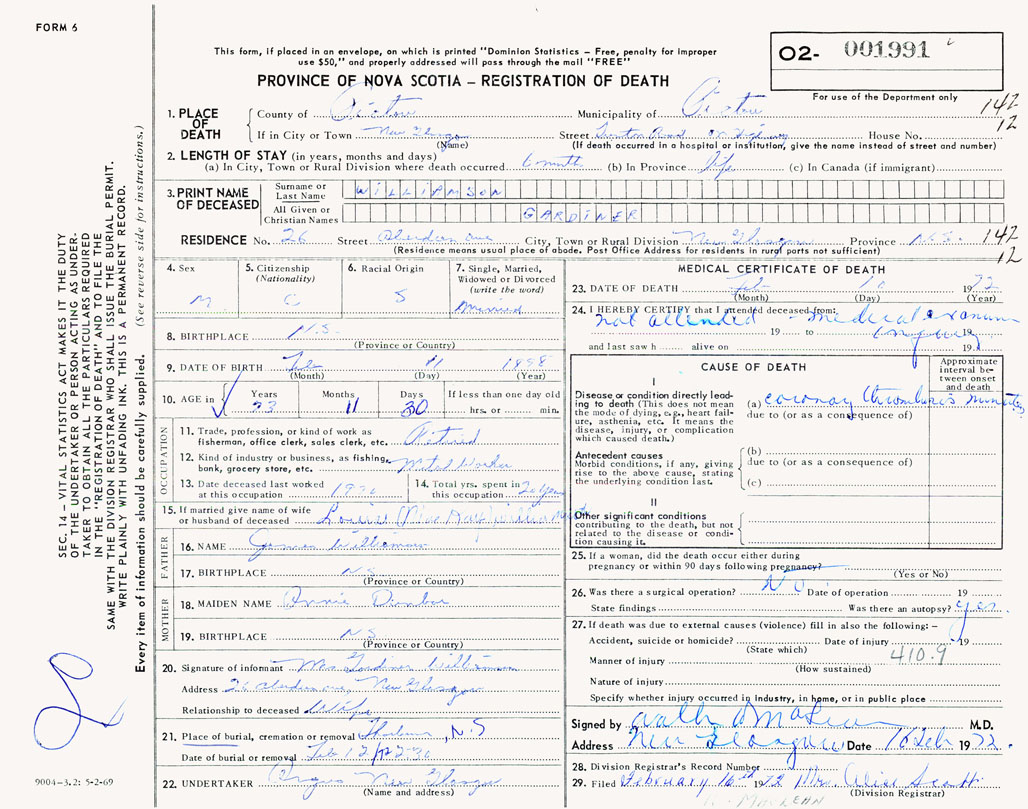 FORM 6
This form, if placed in an envelope, on which is printed "Dominion Statistics – Free, penalty for improper
use $50," and properly addressed will pass through the mail "FREE"
PROVINCE OF NOVA SCOTIA – REGISTRATION OF DEATH
O2- 001991
For use of the Department only
142
12
1. PLACE OF DEATH
County of Pictou Municipality of Pictou
If in City or Town New Glasgow Street House No.
(Name) (If death occurred in a hospital or institution, give the name instead of street and number)
2. LENGTH OF STAY (in years, months and days)
(a) In City, Town or Rural Division where death occurred 6 month (b) In Province life (c) In Canada (if immigrant)
3. PRINT NAME OF DECEASED
Surname or Last Name WILLIAMSON
All Given or Christian Names GARDINER
RESIDENCE No. 26 Street Aberdeen ave City, Town or Rural Division New Glasgow Province N.S. 142
12
(Residence means usual place of abode. Post Office Address for residents in rural parts not sufficient)
4. Sex M
5. Citizenship (Nationality) C
6. Racial Origin S
7. Single, Married, Widowed or Divorced (write the word) Married
8. BIRTHPLACE N.S.
(Province or Country)
9. DATE OF BIRTH Feb 11 1898
(Month) (Day) (Year)
10. AGE in Years 73 Months 11 Days 30 If less than one day old hrs. or min.
OCCUPATION
11. Trade, profession, or kind of work as fisherman, office clerk, sales clerk, etc. Retired
12. Kind of industry or business, as fishing, bank, grocery store, etc. Metal Worker
13. Date deceased last worked at this occupation
14. Total yrs. spent in this occupation 20 years
15. If married give name of wife or husband of deceased Louise
FATHER
16. NAME James Williamson
17. BIRTHPLACE N.S
(Province or Country)
MOTHER
18. MAIDEN NAME Annie Dunbar
19. BIRTHPLACE N.S
(Province or Country)
20. Signature of informant Mrs Gardiner Williamson
Address 26 Aberdeen ave, New Glasgow
Relationship to deceased Wife
21. Place of burial, cremation or removal , N.S
Date of burial or removal Feb 12/72
22. UNDERTAKER New Glasgow
(Name and address)
MEDICAL CERTIFICATE OF DEATH
23. DATE OF DEATH Feb 10 1972
(Month) (Day) (Year)
24. I HEREBY CERTIFY that I attended deceased from:
not attended - medical examiner
19 to inquiry 19
and last saw h alive on 19
CAUSE OF DEATH
Approximate interval between onset and death
I
Disease or condition directly leading to death (This does not mean the mode of dying, e.g., heart failure, asthenia, etc. It means the disease, injury, or complication which caused death.)
(a) coronary thrombosis minutes
due to (or as a consequence of)
Antecedent causes
Morbid conditions, if any, giving rise to the above cause, stating the underlying condition last.
(b)
due to (or as a consequence of)
(c)
II
Other significant conditions
contributing to the death, but not related to the disease or condition causing it.
25. If a woman, did the death occur either during
pregnancy or within 90 days following pregnancy?
(Yes or No)
26. Was there a surgical operation? No Date of operation 19
State findings Was there an autopsy? yes
27. If death was due to external causes (violence) fill in also the following: –
Accident, suicide or homicide? Date of injury 19
(State which) 410.9
Manner of injury
(How sustained)
Nature of injury
Specify whether injury occurred in industry, in home, or in public place
Signed by M.D.
Address New Glasgow Date 16 Feb 1972.
28. Division Registrar's Record Number
29. Filed February 16th 1972 Mrs. Alice Scott
(Division Registrar)
MACLEAN
SEC. 14 – VITAL STATISTICS ACT MAKES IT THE DUTY
OF THE UNDERTAKER OR PERSON ACTING AS UNDER-
TAKER TO OBTAIN ALL THE PARTICULARS REQUIRED
IN THE "REGISTRATION OF DEATH" AND TO FILE THE
SAME WITH THE DIVISION REGISTRAR WHO SHALL ISSUE THE BURIAL PERMIT.
WRITE PLAINLY WITH UNFADING INK. THIS IS A PERMANENT RECORD.
Every item of information should be carefully supplied. (See reverse side for instructions.)
9004-3.2: 5-2-69